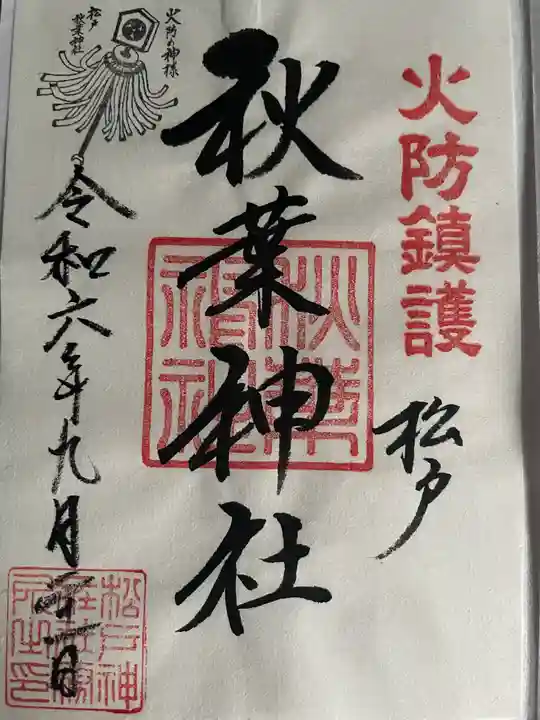 火防鎮護
松戸
秋葉神社
火防の神様
松戸
秋葉神社
秋葉神社
令和六年九月
日
松戸神